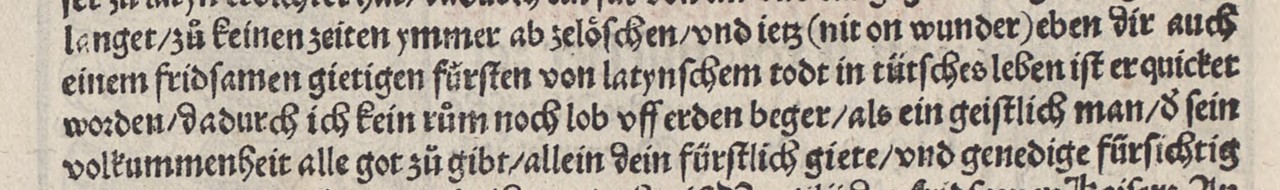 langet/zů keinen zeiten ymmer ab zelöschen/vnd ietz (nit on wunder) eben dir auch
einem fridsamen gietigen fürsten von latynschem todt in tütsches leben ist erquicket
worden/dadurch ich kein rům noch lob vff erden beger/als ein geistlich man/d̕ sein
volkummenheit alle got zů gibt/allein dein fürstlich giete/vnd genedige fürsichtig